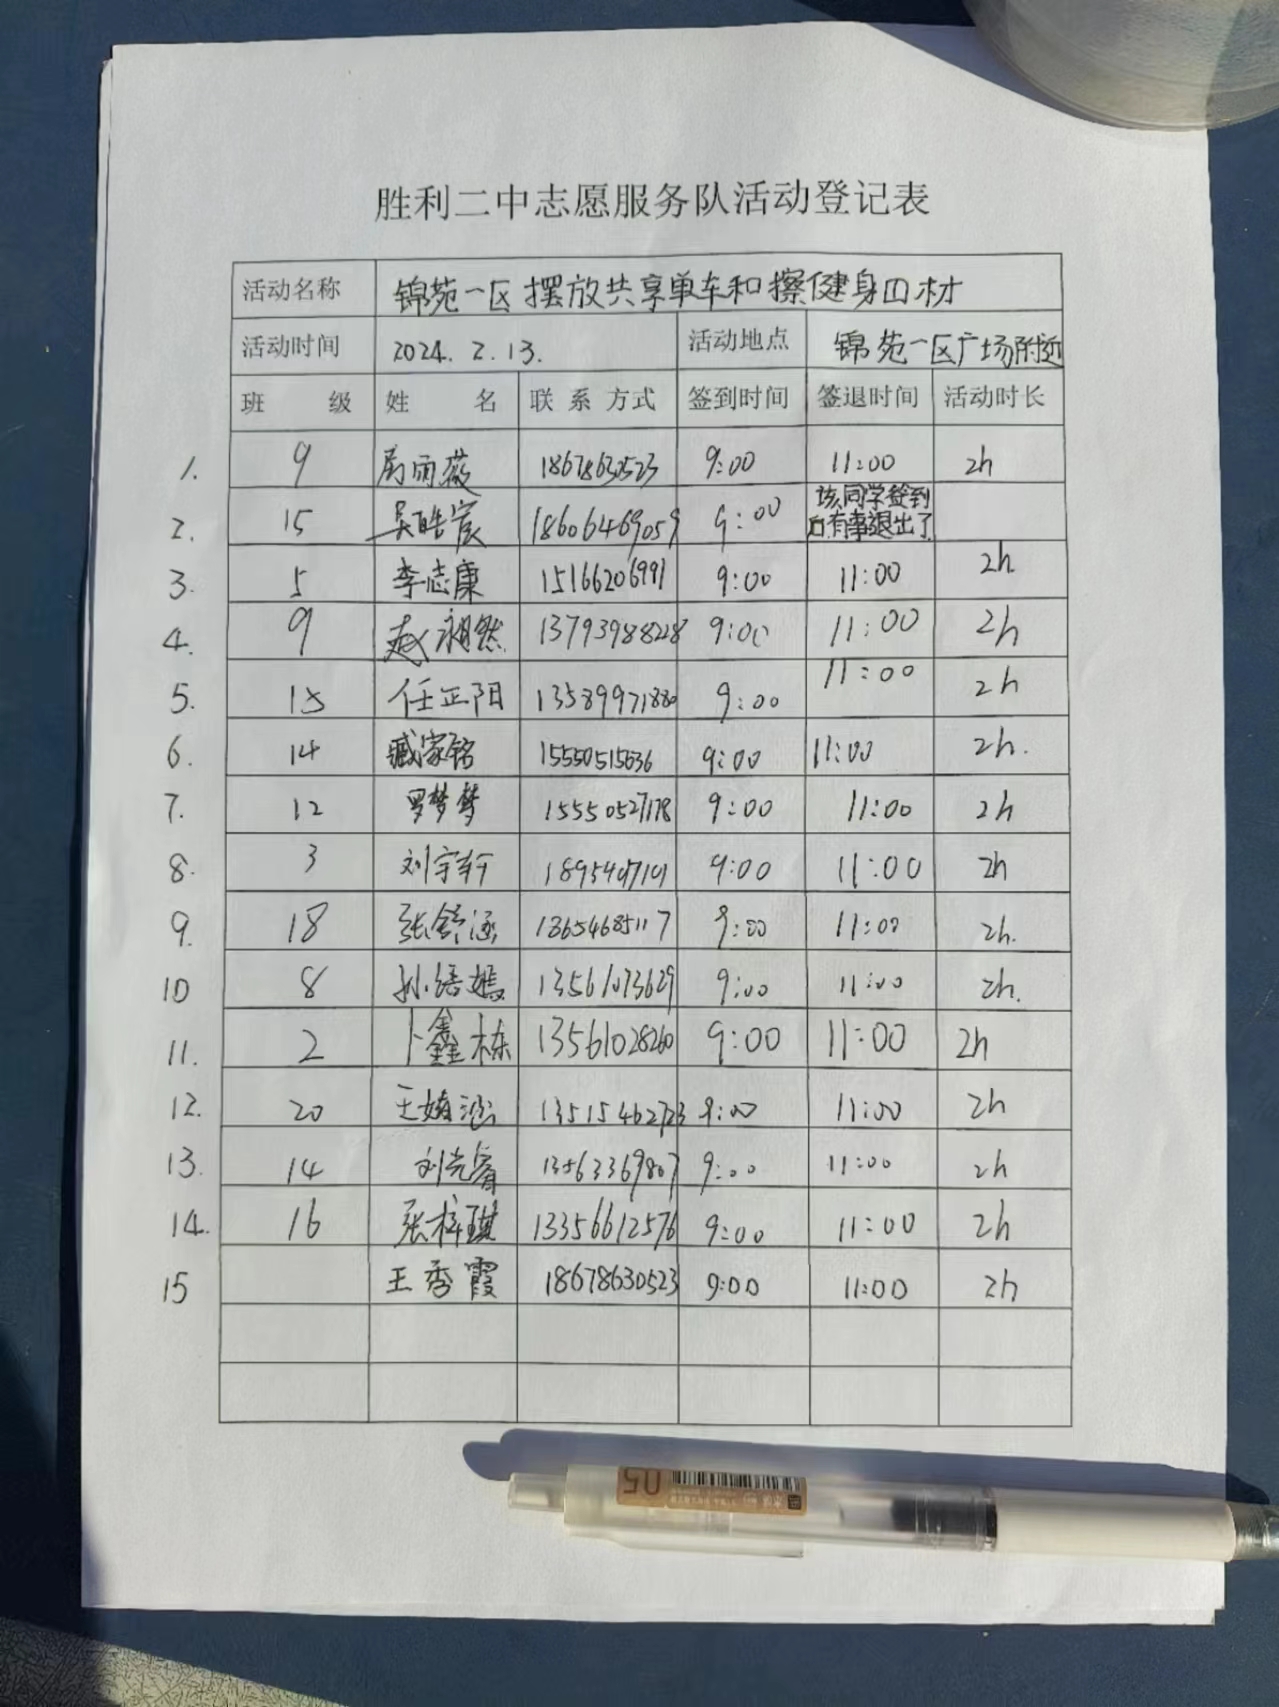 胜利二中志愿服务队活动登记表
活动名称 锦苑一区摆放共享单车和擦健身口材
活动时间 2024.2.13. 活动地点 锦苑一区广场附近
班 级 姓 名 联系方式 签到时间 签退时间 活动时长
1. 9 雨薇 18678630523 9:00 11:00 2h
2. 15 吴皓宸 18606469059 9:00 该同学签到后有事退出了
3. 5 李志康 15166206991 9:00 11:00 2h
4. 9 赵湘然 13793988228 9:00 11:00 2h
5. 15 任正阳 13589971880 9:00 11:00 2h
6. 14 臧家铭 15550515636 9:00 11:00 2h.
7. 12 罗梦梦 15550527178 9:00 11:00 2h
8. 3 刘宇轩 9:00 11:00 2h
9. 18 张舒涵 13654685117 9:00 11:00 2h.
10 8 孙嫣 13561073629 9:00 11:00 2h.
11. 2 卜鑫栋 13561028260 9:00 11:00 2h
12. 20 王婧涵 13515462723 9:00 11:00 2h
13. 14 刘光睿 13563369807 9:00 11:00 2h
14. 16 张梓琪 13356612576 9:00 11:00 2h
15 王秀霞 18678630523 9:00 11:00 2h
05